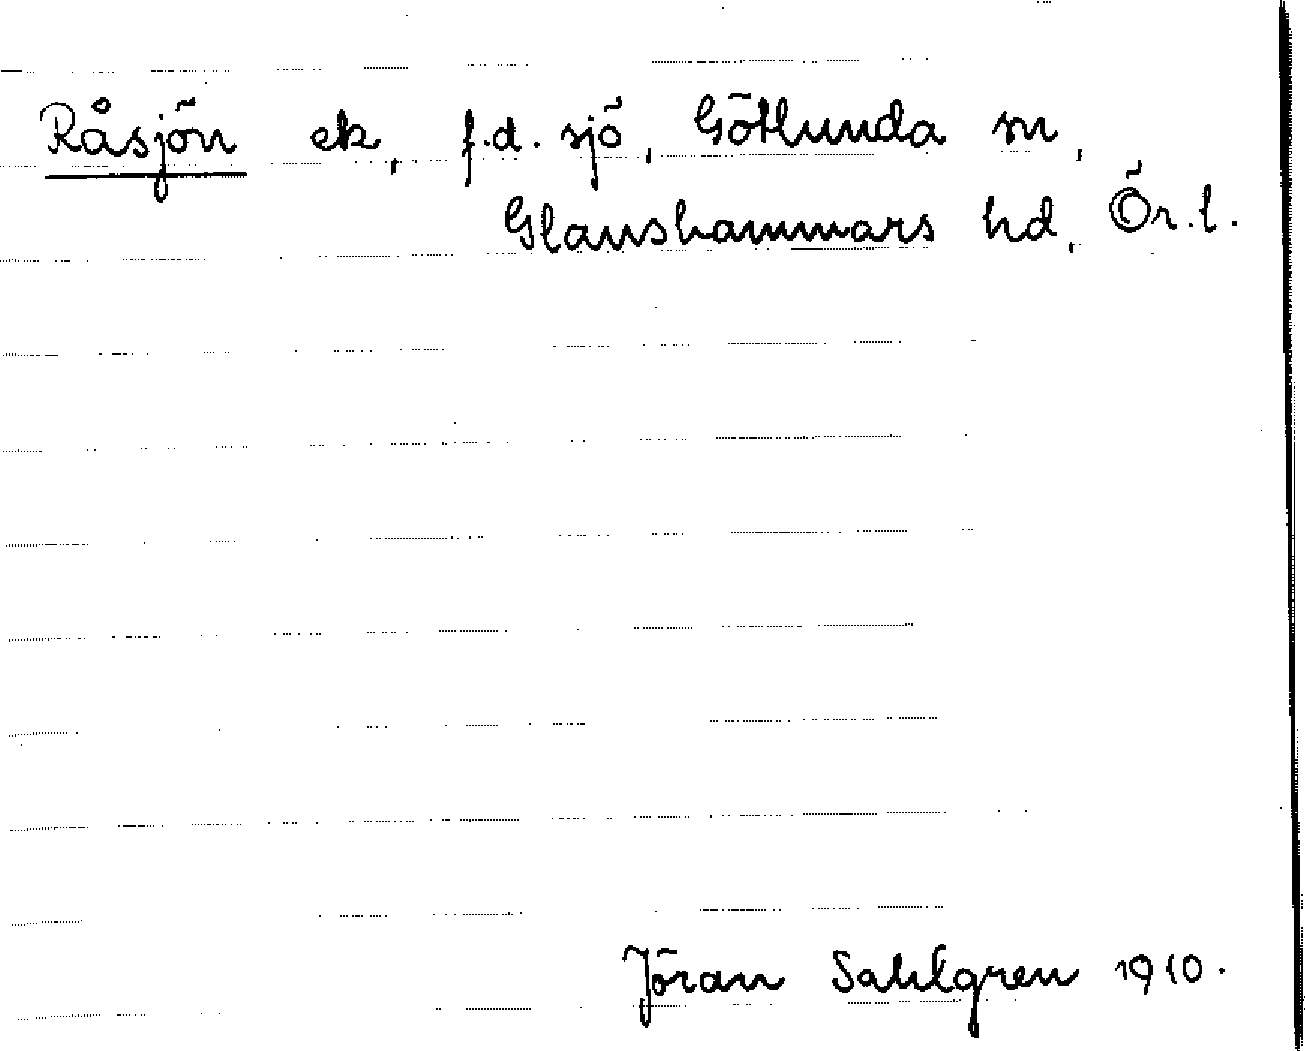 Råsjön ek, f.d. sjö, Götlunda sn,
Glanshammars hd, Ör.l.
Jöran Sahlgren 1910.